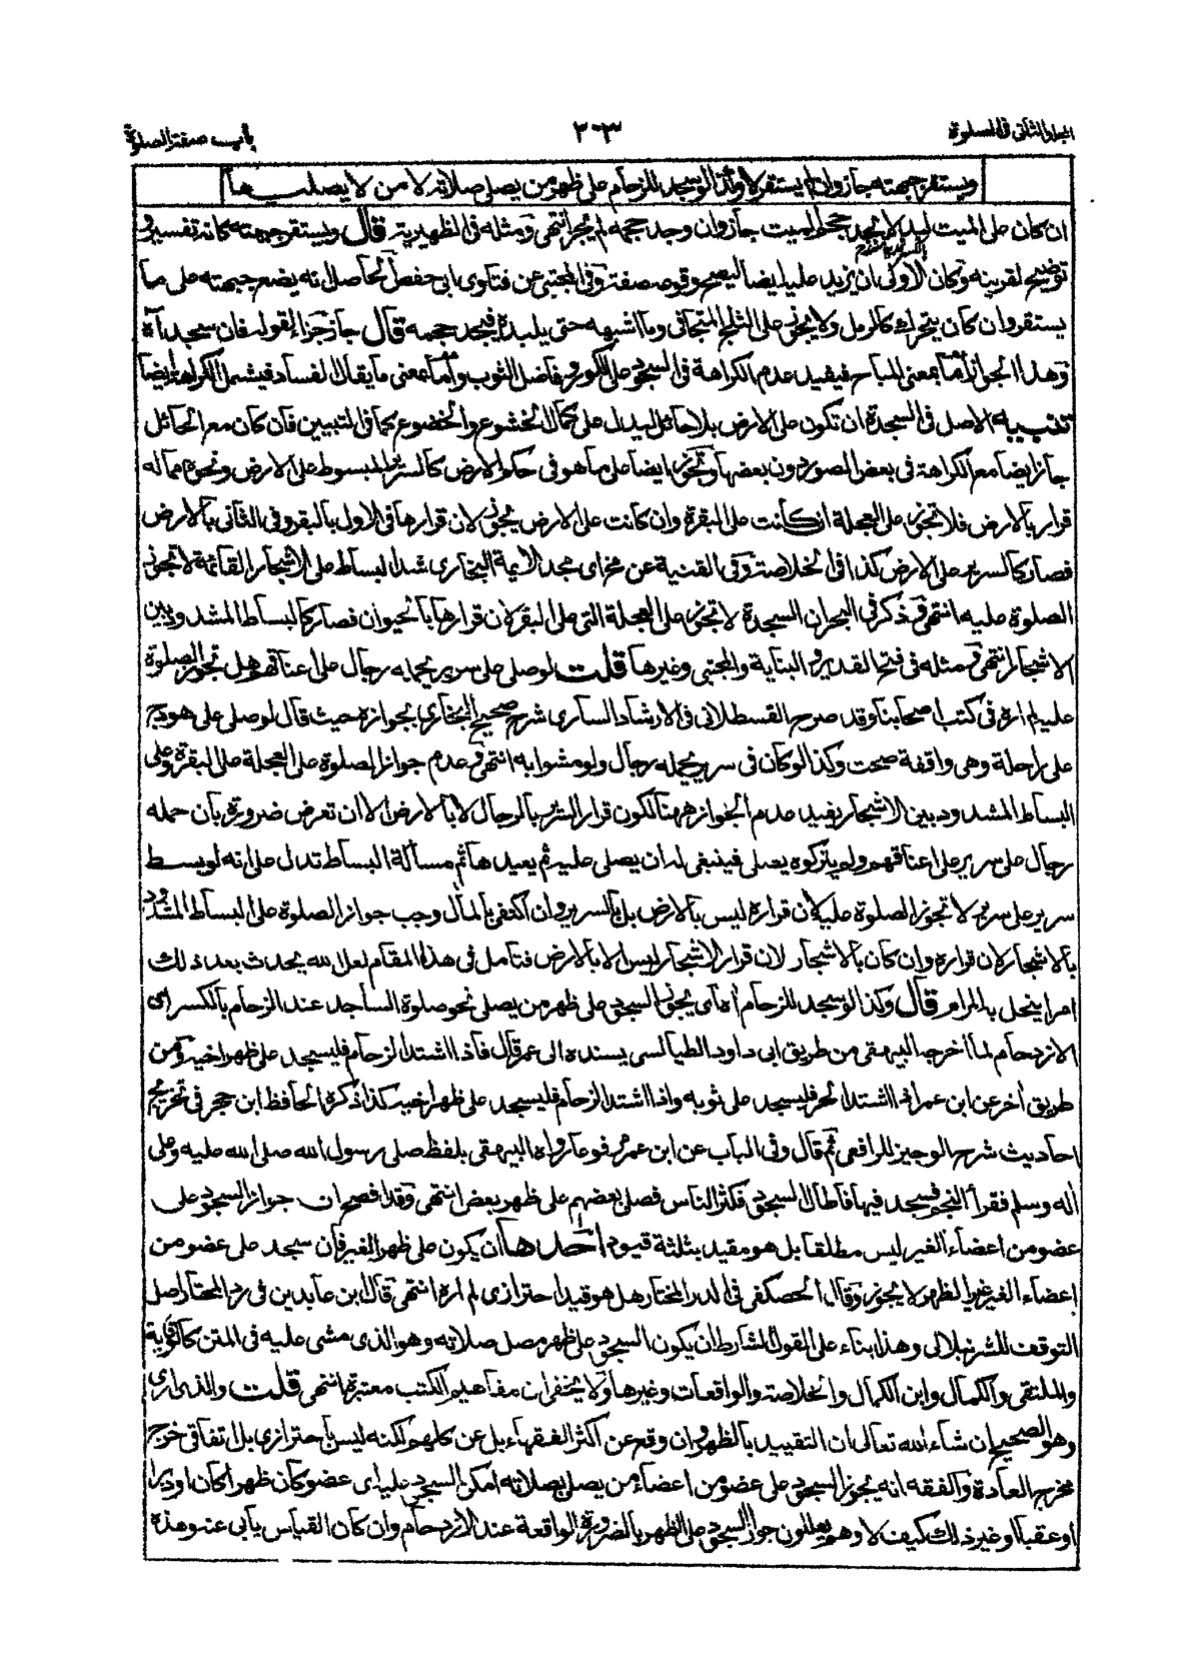 المجلد الثانى فى الصلوة
٢٠٣
باب صفة الصلوة
ويستقر جبهته جاز وان لم يستقر لا وكذا لو سجد للزحام على ظهر من يصلى صلاته لا من لا يصليها
ان كان على الميت لبد لا يجد حجم الميت جاز وان وجد حجمه لم يجز انتهى ومثله فى الظهيرية قال ويستقر جبهته كانه تفسير و
توضيح لقرينه وكان الاولى ان يزيد عليه ايضا ليصح وقوعه صفة وفى المجتبى عن فتاوى ابى حفص الحاصل انه يضع جبهته على ما
يستقر وان كان يتحرك كالرمل ولا يجوز على الثلج المتجافى وما اشبهه حتى يلبده فيجد حجمه قال جاز جزاء لقوله فان سجد آه
وهذا الجواز اما بمعنى المباح فيفيد عدم الكراهة فى السجود على الكور و فاضل الثوب واما بمعنى ما يقابل الفساد فيشمل الكراهة ايضا
تنبيه الاصل فى السجدة ان تكون على الارض بلا حائل ليدل على كمال الخشوع والخضوع كما فى التبيين فان كان مع الحائل
جاز ايضا مع الكراهة فى بعض الصور دون بعضها وتجوز ايضا على ما هو فى حكم الارض كالسرير المبسوط على الارض ونحوه مما له
قرار بالارض فلا تجوز على العجلة ان كانت على البقرة وان كانت على الارض يجوز لان قرارها فى الاول بالبقر وفى الثانى بالارض
فصار كالسرير على الارض كذا فى الخلاصة وفى القنية عن مخ اى مجد الايمة البخارى شد البساط على الاشجار القائمة لا تجوز
الصلوة عليه انتهى وذكر فى البحر ان السجدة لا تجوز على العجلة التى على البقر لان قرارها بالحيوان فصار كالبساط المشدود بين
الاشجار انتهى ومثله فى فتح القدير و البناية والمجتبى وغيرها قلت لو صلى على سرير يحمله رجال على اعناقهم هل تجوز الصلوة
عليه لم اره فى كتب اصحابنا وقد صرح القسطلانى فى الارشاد السارى شرح صحيح البخارى بجوازه حيث قال لو صلى على هودج
على راحلة وهى واقفة صحت وكذا لو كان فى سرير يحمله رجال ولو مشوا به انتهى وعدم جواز الصلوة على العجلة على البقرة وعلى
البساط المشدود بين الاشجار يفيد عدم الجواز ههنا لكون قرار السرير بالرجال لا بالارض الا ان تعرض ضرورة بان حمله
رجال على سرير على اعناقهم ولم يتركوه يصلى فينبغى له ان يصلى عليه ثم يعيدها ثم مسألة البساط تدل على انه لو بسط
سرير على سرير لا تجوز الصلوة عليه لان قراره ليس بالارض بل بالسرير وان اكتفى بالمآل وجب جواز الصلوة على البساط المشدود
بالاشجار لان قراره وان كان بالاشجار لان قرار الاشجار ليس الا بالارض فتامل فى هذا المقام لعل الله يحدث بعد ذلك
امرا ينحل به المرام قال وكذا لو سجد للزحام آه اى يجوز السجود على ظهر من يصلى نحو صلوة الساجد عند الزحام بالكسر اى
الازدحام لما اخرجه البيهقى من طريق ابى داود الطيالسى يسنده الى عمر قال فاذا اشتد الزحام فليسجد على ظهر اخيه ومن
طريق اخر عن ابن عمر اذا اشتد الحر فليسجد على ثوبه واذا اشتد الزحام فليسجد على ظهر اخيه كذا ذكره الحافظ ابن حجر فى تخريج
احاديث شرح الوجيز للرافعى ثم قال وفى الباب عن ابن عمر مرفوعا رواه البيهقى بلفظ صلى رسول الله صلى الله عليه وعلى
آله وسلم فقرأ النجم فسجد فيها فاطال السجود فكثر الناس فصلى بعضهم على ظهر بعض انتهى وقد افصح ان جواز السجود على
عضو من اعضاء الغير ليس مطلقا بل هو مقيد بثلثة قيود احدها ان يكون على ظهر الغير فان سجد على عضو من
اعضاء الغير غير الظهر لا يجوز وقال الحصكفى فى الدر المختار هل هو قيد احترازى لم اره انتهى قال ابن عابدين فى رد المحتار اصل
التوقف للشرنبلالى وهذا بناء على القول المشارط ان يكون السجود على ظهر مصل صلاته وهو الذى مشى عليه فى المتن كالوقاية
والملتقى والكمال وابن الكمال والخلاصة والواقعات وغيرها ولا يخفى ان مفاهيم الكتب معتبرة انتهى قلت والذى ارى
وهو الصحيح ان شاء الله تعالى ان التقييد بالظهر وان وقع عن اكثر الفقهاء بل عن كلهم لكنه ليس باحترازى بل اتفاقى خرج
مخرج العادة والفقه انه يجوز السجود على عضو من اعضاء من يصلى بصلاته امكن السجود عليه اى عضو كان ظهرا كان او دبرا
او عقبا او غير ذلك كيف لا وهم يعللون جواز السجود على الظهر بالضرورة الواقعة عند الازدحام وان كان القياس يأبى عنه وهذه